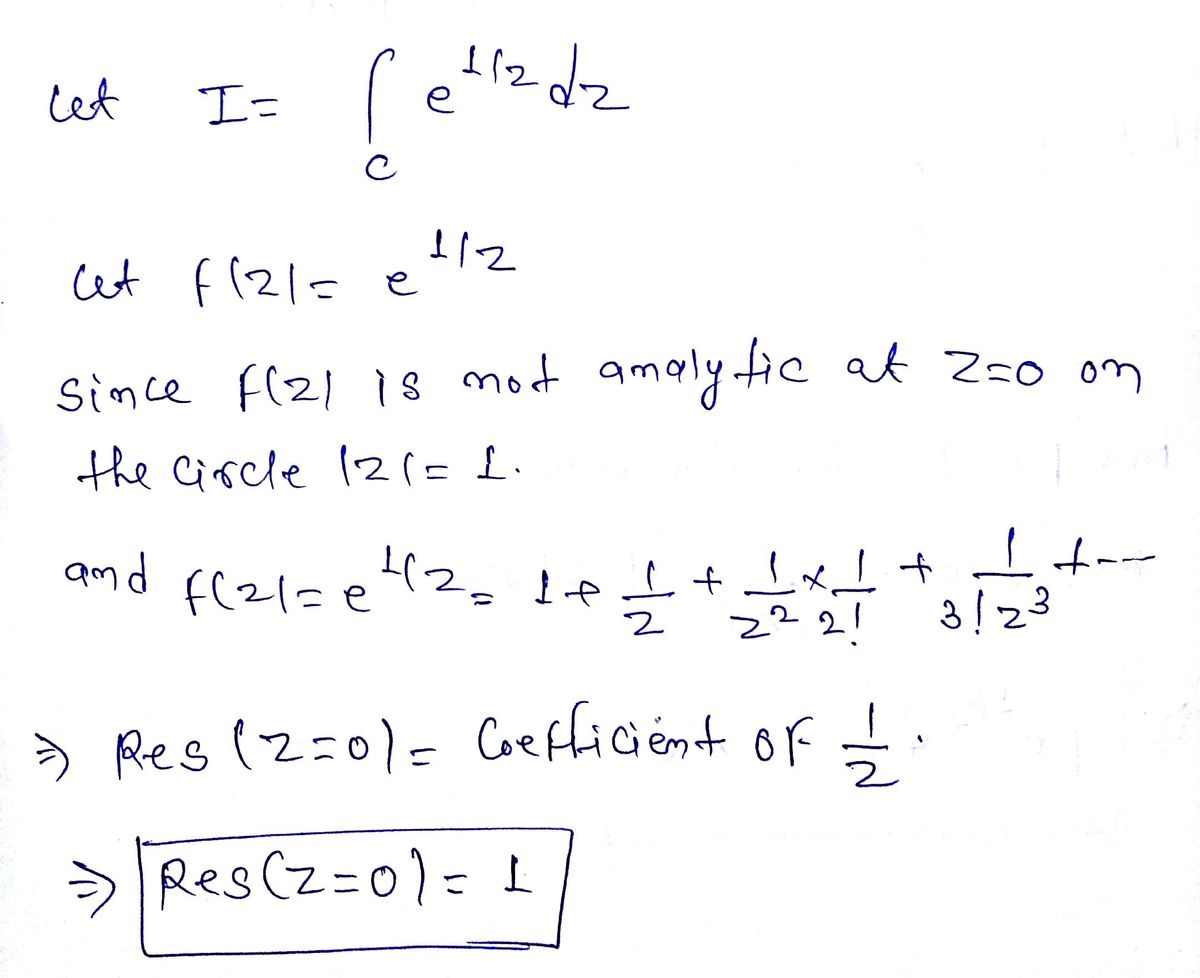 Let I = ∫_C e^{1/z} dz
Let f(z) = e^{1/z}
Since f(z) is not analytic at z=0 on
the Circle |z| = 1.
and f(z) = e^{1/z} = 1 + 1/z + 1/z^2 × 1/2! + 1/(3! z^3) + ---
⇒ Res (z=0) = Coefficient of 1/z.
⇒ Res (z=0) = 1